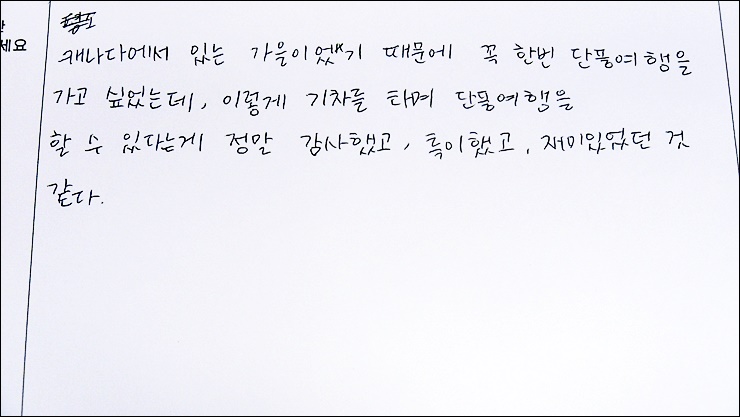 세요
캐나다에서 있는 가을이었기 때문에 꼭 한번 단풍여행을
가고 싶었는데, 이렇게 기차를 타며 단풍여행을
할 수 있다는게 정말 감사했고, 특이했고, 재미있었던 것
같다.